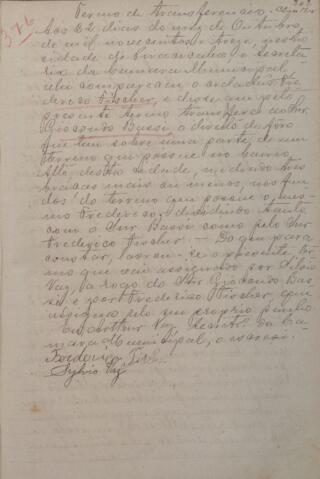 376
Termo de transferencia.
Aos 22 dias do mez de Outubro
de mil novecentos e treze, nesta
cidade de Piracicaba, e Secreta
ria da Camara Municipal,
ahi compareceu o cidadão Fre
derico Fischer, e disse que pelo
presente termo transfere ao Snr
Giocondo Bassi o direito de fôro
que tem sobre uma parte de um
terreno que possue no bairro
Alto, desta cidade, medindo tres
braças mais ou menos, nos fun
dos do terreno que possue o mes
mo Frederico, dividindo tanto
com o Snr Bassi como pelo Snr
Frederico Fischer. — Do que para
constar, lavrou-se o presente ter
mo que vai assignado por Silvio
Vaz, a rogo do Snr Giocondo Bas
si e por Frederico Fischer, que
assigna pelo seu proprio punho
Eu Arthur Vaz, Secretº da Ca
mara Municipal, o escrevi.
Sylvio Vaz